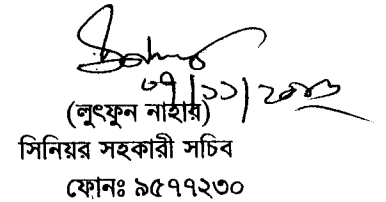 ০৭/১১/২০১৩
(লুৎফুন নাহার)
সিনিয়র সহকারী সচিব
ফোনঃ ৯৫৭৭২৩০